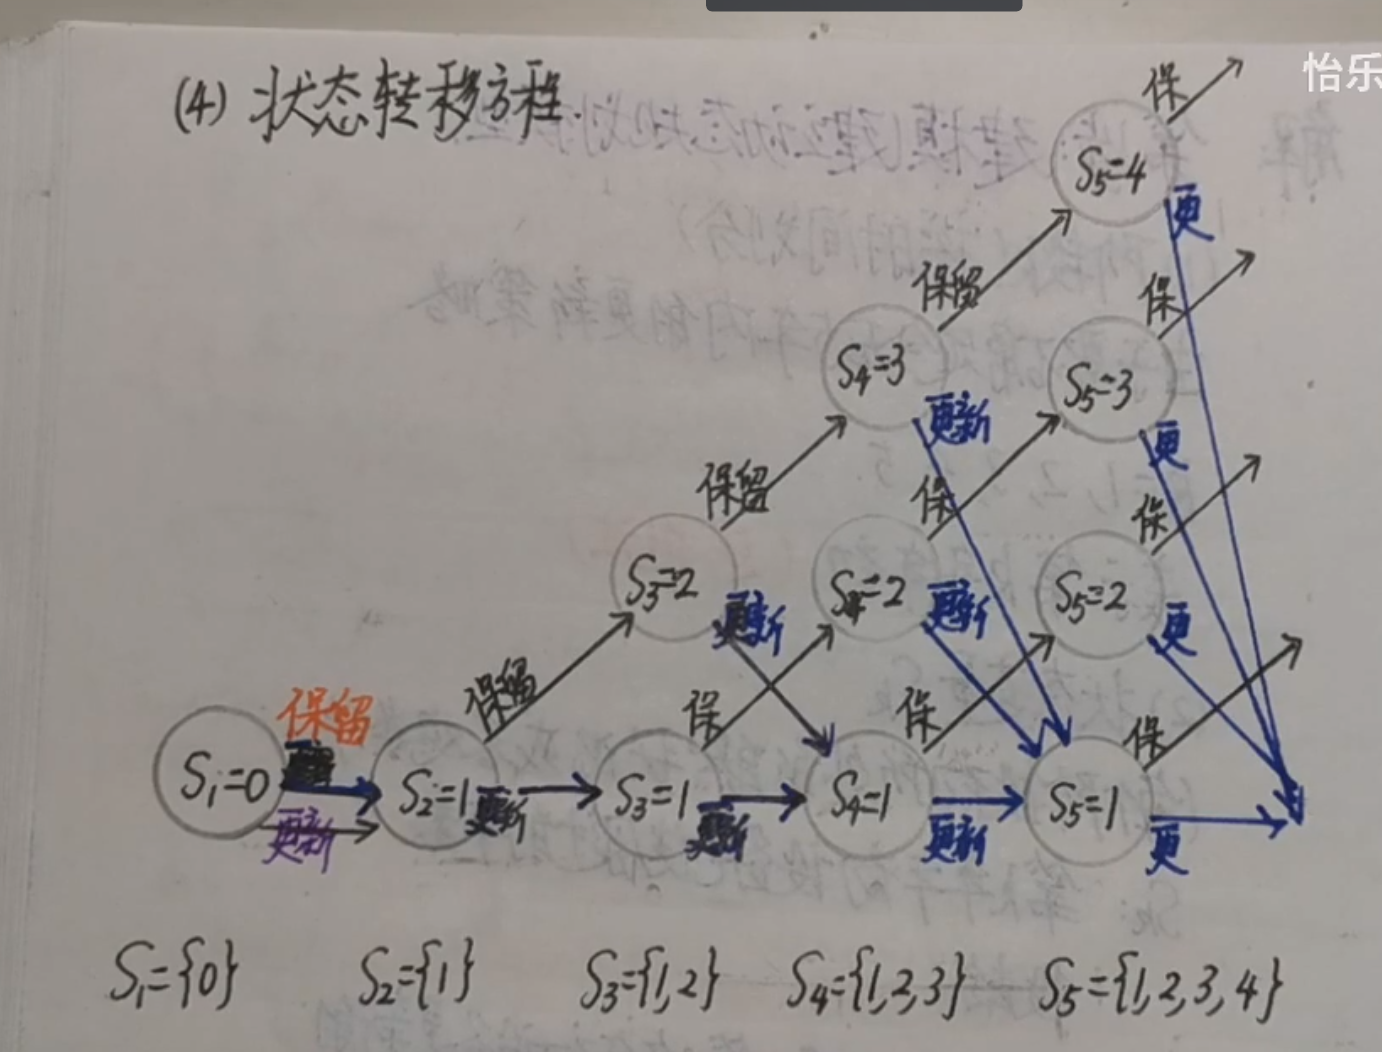 怡乐
(4) 状态转移方程.
保
S₅=4
更
保留
保
S₄=3
S₅=3
更新
更
保留
保
保
S₃=2
S₄=2
S₅=2
更新
更新
更
保留
保
保
保
保留
S₁=0
S₂=1
S₃=1
S₄=1
S₅=1
更新
更新
更新
更新
更
S₁={0}
S₂={1}
S₃={1,2}
S₄={1,2,3}
S₅={1,2,3,4}